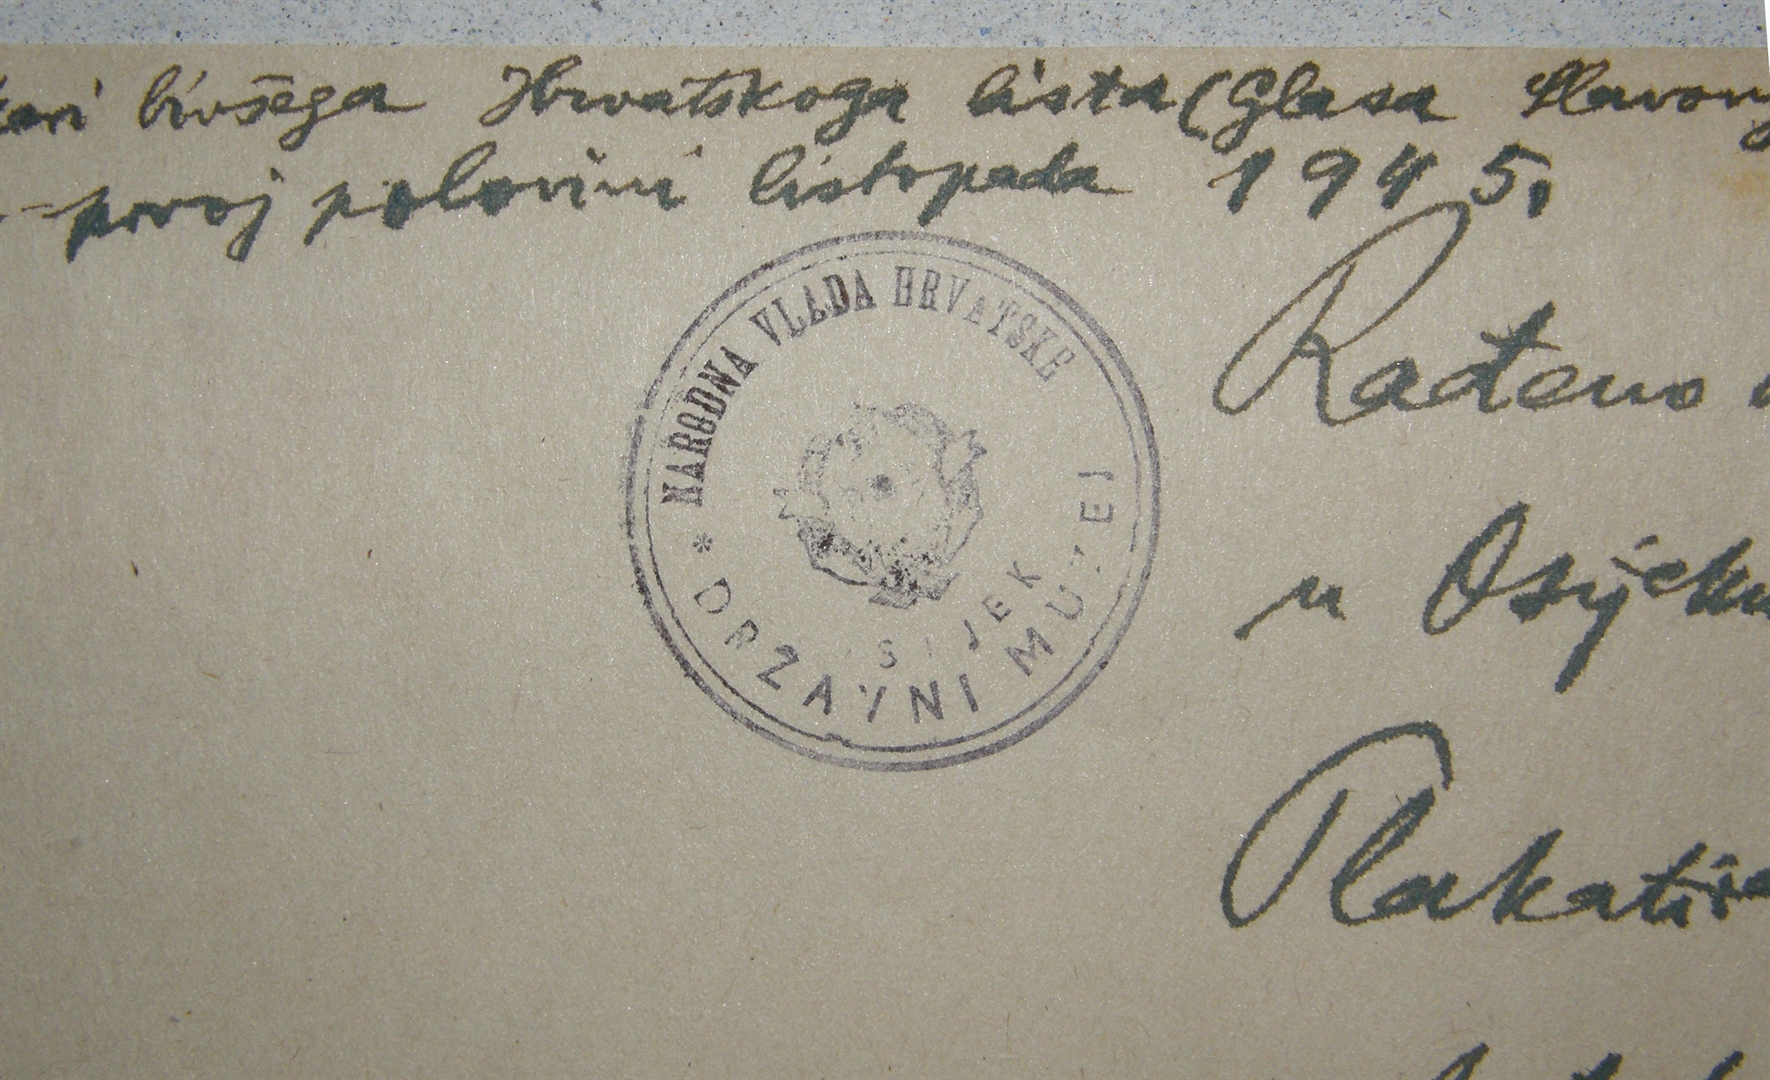 bivšega Hrvatskoga lista (Glasa Slavon
prvoj polovini listopada 1945.
NARODNA VLADA HRVATSKE
* DRŽAVNI MUZEJ
OSIJEK
Rađeno
u Osijeku
Plakatira